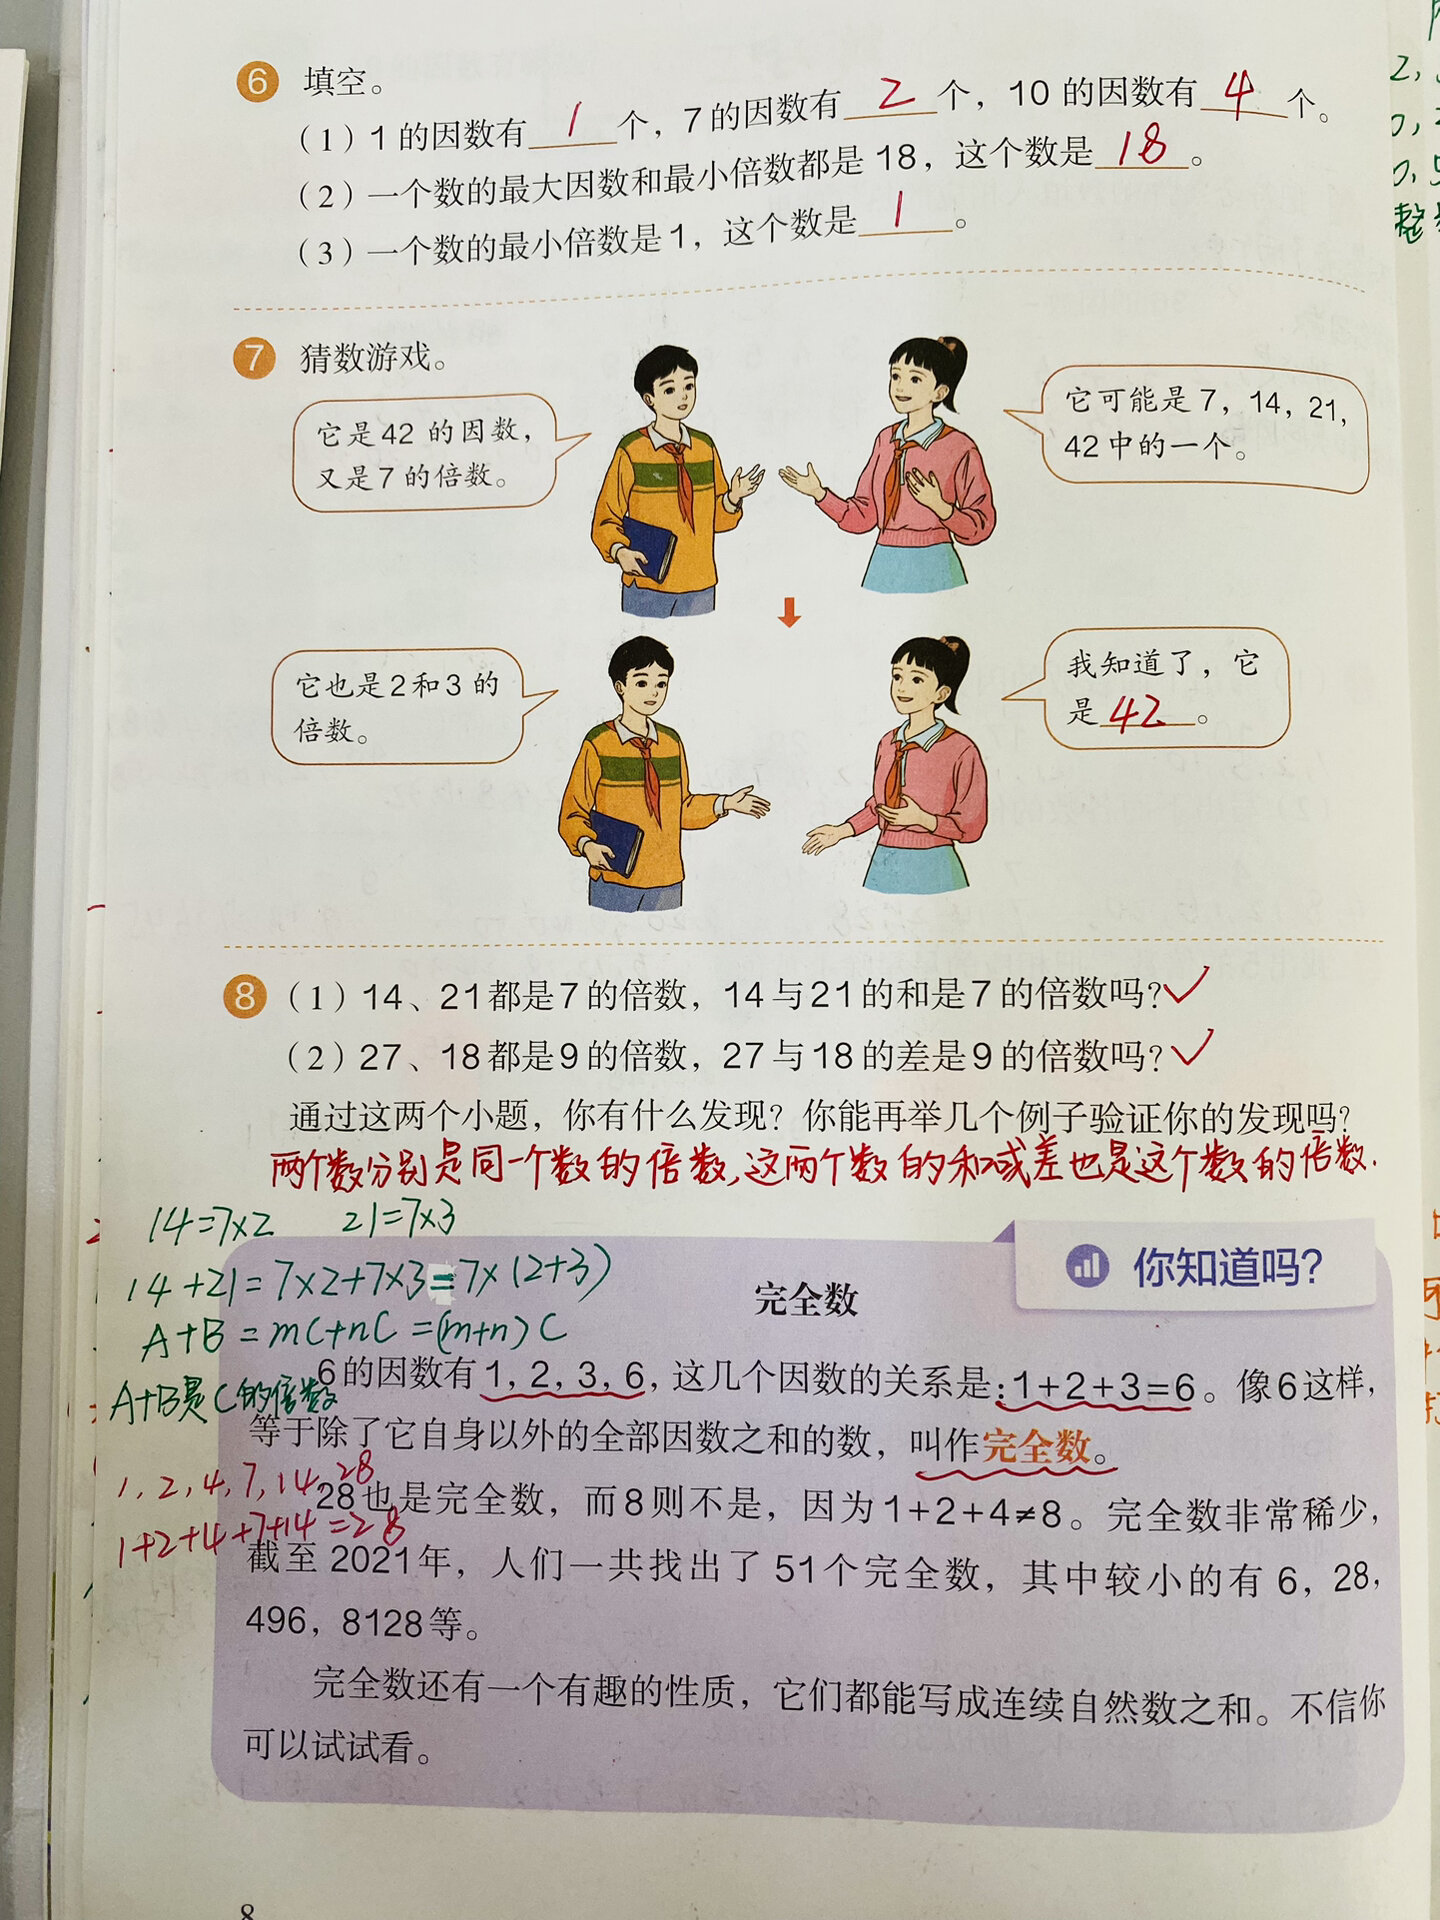 6 填空。
（1）1 的因数有 1 个，7 的因数有 2 个，10 的因数有 4 个。
（2）一个数的最大因数和最小倍数都是 18，这个数是 18 。
（3）一个数的最小倍数是1，这个数是 1 。
7 猜数游戏。
它是42 的因数，
又是7 的倍数。
它可能是 7，14，21，
42 中的一个。
它也是2和3 的
倍数。
我知道了，它
是 42 。
8 （1）14、21都是7 的倍数，14 与21 的和是7 的倍数吗？✓
（2）27、18都是9 的倍数，27 与18 的差是9 的倍数吗？✓
通过这两个小题，你有什么发现？你能再举几个例子验证你的发现吗？
两个数分别是同一个数的倍数,这两个数的和或差也是这个数的倍数.
14=7×2 21=7×3
14+21=7×2+7×3=7×(2+3)
A+B=mC+nC=(m+n)C
A+B是C的倍数
你知道吗？
完全数
6的因数有1，2，3，6，这几个因数的关系是：1+2+3=6。像6这样，
等于除了它自身以外的全部因数之和的数，叫作完全数。
1,2,4,7,14,28
28也是完全数，而8则不是，因为1+2+4≠8。完全数非常稀少，
1+2+4+7+14=28
截至 2021年，人们一共找出了 51个完全数，其中较小的有 6，28，
496，8128等。
完全数还有一个有趣的性质，它们都能写成连续自然数之和。不信你
可以试试看。
8